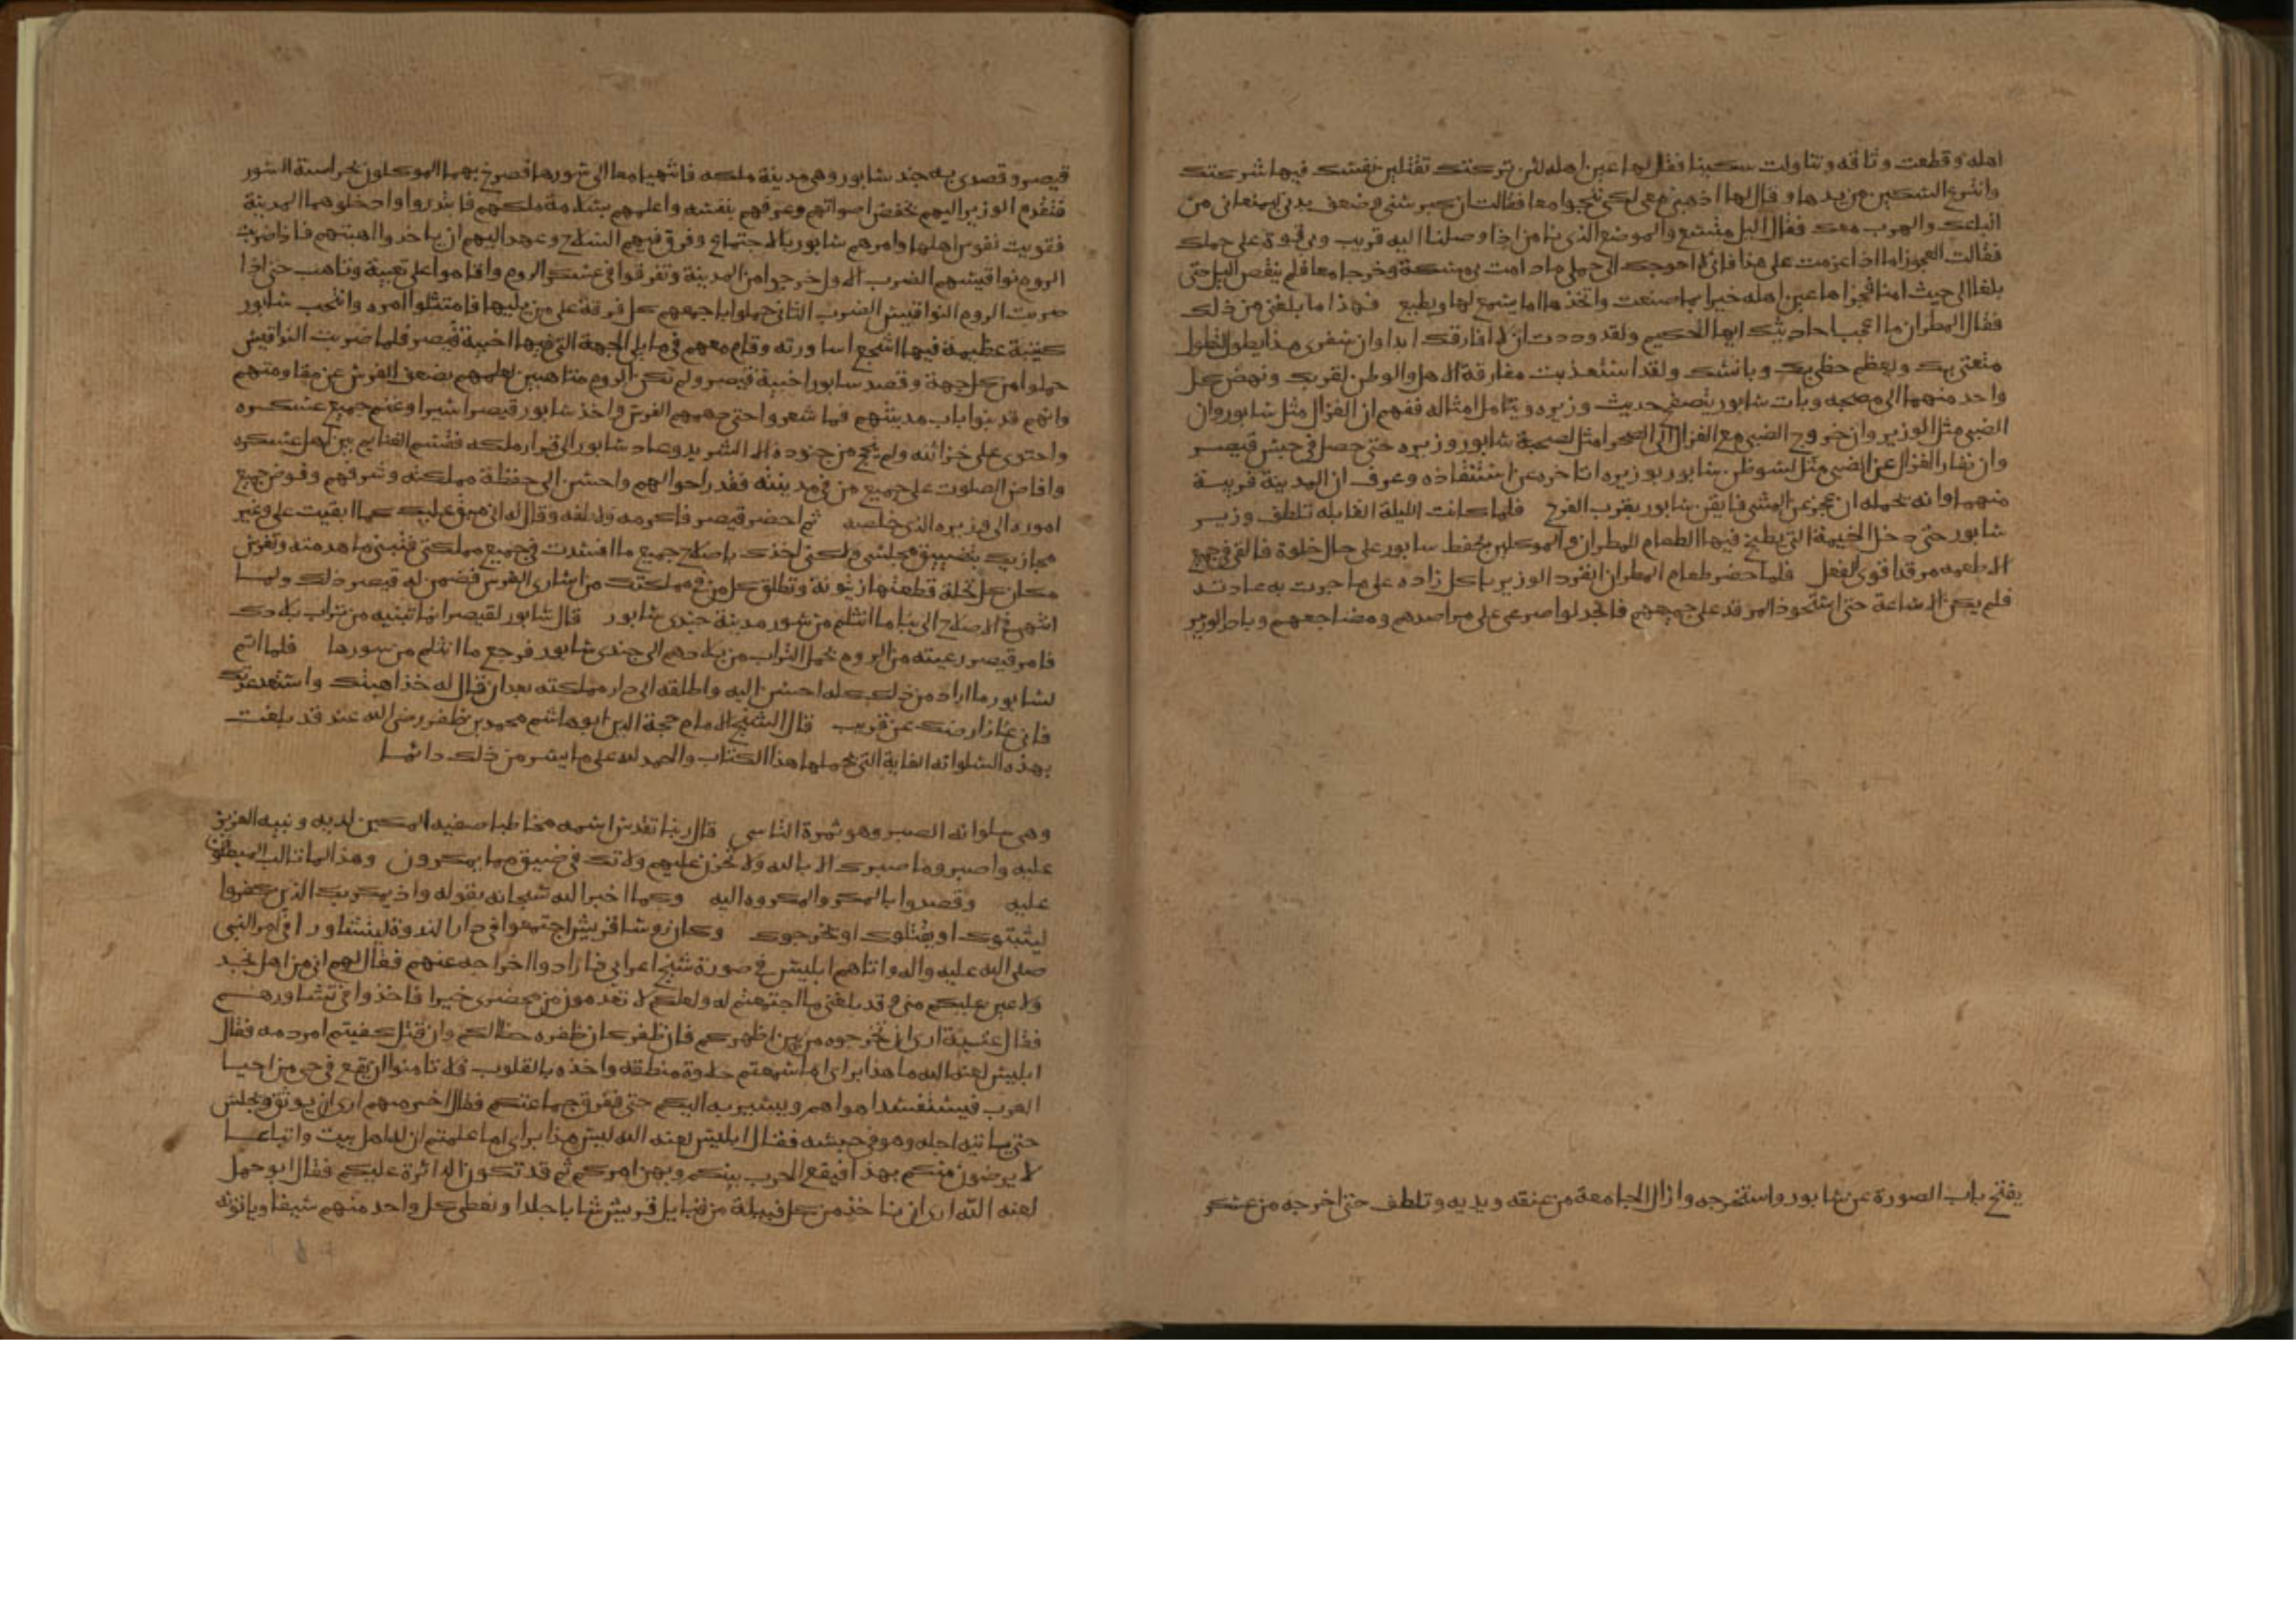 اهله وقطعت وثاقه وتناولت سكينا فقال لها عين اهله لئن تركتك تقتلين نفسك فيها شركتك
وانتزع السكين من يدها وقال لها اذهبي معي لكي ننجوا معا فقالت ان كبر سني وضعف بدني يمنعاني من
اتباعك والهرب معك فقال الليل متسع والموضع الذي نامن اذا وصلنا اليه قريب وبي قوة على حملك
فقالت العجوز اما اذا عزمت على هذا فاني لا احوجك الى حملي ما دامت بي مسكة وخرجا معا فلم ينقض الليل حتى
بلغا الى حيث امنا فجزاها عين اهله خيرا بما صنعت واتخذها اما يسمع لها ويطيع فهذا ما بلغني من ذلك
فقال المطران ما اعجب احاديثك ايها الحكيم ولقد وددت ان لا افارقك ابدا وان سفري هذا يطول لتطول
متعتي بك ويعظم حظي بك وبانسك ولقد استعذبت مفارقة الاهل والوطن لقربك ونهض كل
واحد منهما الى مضجعه وبات سابور يتصفح حديث وزيره ويتامل امثاله ففهم ان الغزال مثل سابور وان
الضبي مثل الوزير وان خروج الضبي مع الغزال الى الصحرا مثل لصحبة سابور وزيره حتى حصل في حبس قيصر
وان نفار الغزال عن الضبي مثل لسو ظن سابور بوزيره اذا تاخره عن استنقاذه وعرف ان المدينة قريبة
منهما وانه يحمله ان عجز عن المشي فايقن سابور بقرب الفرج فلما كانت الليلة القابله تلطف وزير
سابور حتى دخل الخيمة التي يطبخ فيها الطعام للمطران والموكلين بحفظ سابور على حال خلوة فالقى في جميع
الاطعمه مرقدا قوي الفعل فلما حضر طعام المطران انفرد الوزير باكل زاده على ما جرت به عادته
فلم يكن الا ساعة حتى استحوذ المرقد على جميعهم فانجدلوا صرعى على مراصدهم ومضاجعهم وبادر الوزير
يفتح باب الصورة عن سابور واستخرجه وازال الجامعة من عنقه ويديه وتلطف حتى اخرجه من عسكر
قيصر وقصد به جند سابور وهي مدينة ملكه فانتهيا معا الى سورها فصرخ بهما الموكلون بحراسة السور
فتقدم الوزير اليهم بخفض اصواتهم وعرفهم بنفسه واعلمهم بسلامة ملكهم فابتدروا وادخلوهما المدينة
فقويت نفوس اهلها وامرهم سابور بالاجتماع وفرق فيهم السلاح وعهد اليهم ان ياخذوا اهبتهم فاذا ضربت
الروم نواقيسهم الضرب الاول خرجوا من المدينة وتفرقوا في عسكر الروم واقاموا على تعبية وتاهب حتى اذا
ضربت الروم النواقيس الضرب الثاني حملوا باجمعهم كل فرقة على من يليها فامتثلوا امره وانتخب سابور
كتيبة عظيمة فيها اشجع اساورته وقام معهم في ما يلي الجهة التي فيها اخبية قيصر فلما ضربت النواقيس
حملوا من كل جهة وقصد سابور اخبية قيصر ولم تكن الروم متاهبين لعلمهم بضعف الفرس عن مقاومتهم
وانهم قد بنوا باب مدينتهم فما شعروا حتى دهمهم الفرس واخذ سابور قيصر اسيرا وغنم جميع عسكره
واحتوى على خزائنه ولم ينج من جنوده الا الشريد وعاد سابور الى قرار ملكه فقسم الغنايم بين اهل عسكره
وافاض الصلوت على جميع من في مدينته فقدر احوالهم واحسن الى حفظة مملكته وشرفهم وفوض جميع
اموره الى وزيره الذي خلصه ثم احضر قيصر فاكرمه ولاطفه وقال له اني مبق عليك كما ابقيت علي وغير
مجازيك بتضييق محبسي ولكني اخذك باصلاح جميع ما افسدت في جميع مملكتي فتبني ما هدمته وتغرس
مكان كل نخلة قطعتها زيتونة وتطلق كل من في مملكتك من اسارى الفرس فضمن له قيصر ذلك ولما
انتهى في الاصلاح الى بنا ما انثلم من سور مدينة جندي سابور قال سابور لقيصر انما تبنيه من تراب بلادك
فامر قيصر رعيته من الروم بحمل التراب من بلادهم الى جندي سابور فرجع ما انثلم من سورها فلما اتم
لسابور ما اراد من ذلك كله احسن اليه واطلقه الى دار مملكته بعد ان قال له خذ اهبتك واستعد عدتك
فاني غاز ارضك عن قريب قال الشيخ الامام حجة الدين ابو هاشم محمد بن ظفر رضي الله عنه قد بلغت
بهذه السلوانه الغاية التي تحملها هذا الكتاب والحمد لله على ما يسر من ذلك دائما
وهي سلوانه الصبر وهو ثمرة التاسي قال ربنا تقدس اسمه مخاطبا صفيه المكين لديه ونبيه العزيز
عليه واصبر وما صبرك الا بالله ولا تحزن عليهم ولا تك في ضيق مما يمكرون وهذا لما تالب المبطلون
عليه وقصدوا بالمكر والمكروه اليه وكما اخبر الله سبحانه بقوله واذ يمكر بك الذين كفروا
ليثبتوك او يقتلوك او يخرجوك وكان روسا قريش اجتمعوا في دار الندوة ليتشاوروا في امر النبي
صلى الله عليه واله واتاهم ابليس في صورة شيخ اعرابي فارادوا اخراجه عنهم فقال لهم اني من اهل نجد
ولا عين عليكم مني وقد بلغني ما اجتمعتم له ولعلكم لا تعدمون من محضري خيرا فاخذوا في تشاورهم
فقال عتبة ارى ان تخرجوه من بين اظهركم فان ظفر كان ظفره حظا لكم وان قتل كفيتم امر دمه فقال
ابليس لعنه الله ما هذا براي اما سمعتم حلاوة منطقه واخذه بالقلوب فلا تامنوا ان يقع في حي من احيا
العرب فيستفسد اهواهم ويسير به اليكم حتى يفرق جماعتكم فقال اخر منهم ارى ان يوثق ويحبس
حتى ياتيه اجله وهو في حبسه فقال ابليس لعنه الله ليس هذا براي اما علمتم ان له اهل بيت واتباعا
لا يرضون منكم بهذا فيقع الحرب بينكم ويهن امركم ثم قد تكون الدائرة عليكم فقال ابو جهل
لعنه الله ارى ان ناخذ من كل قبيلة من قبايل قريش شابا جلدا ونعطي كل واحد منهم سيفا وياتونه